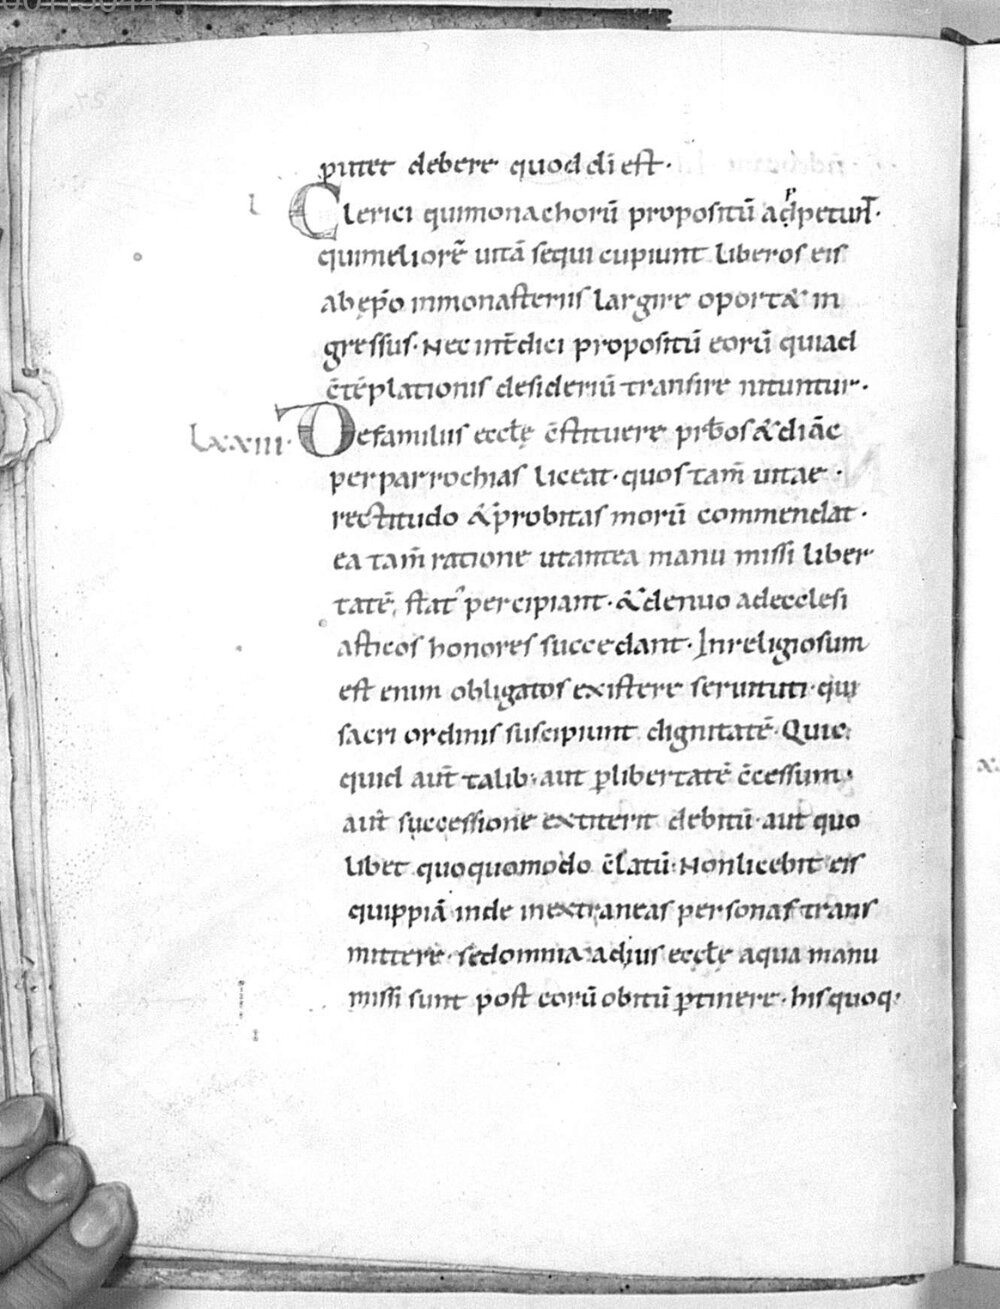 putet debere quod dī est.
l Clerici qui monachorū propositū adpetunt.
qui meliorē uitā sequi cupiunt liberos eis
ab ęp̄o in monasteriis largire oport& in
gressus. Nec int̄dici propositū eorū qui ad
c̄tēplationis desideriū transire nituntur.
lxxiii. De familiis eccłę c̄stituere prb̄os & diāc̄
per parrochias liceat. quos tam̄ uitae.
rectitudo & probitas morū commendat.
ea tam̄ ratione ut antea manu missi liber
tatē, stat᾽ percipiant. & denuo ad ecclesi
asticos honores succedant. Inreligiosum
est enim obligatos existere seruituti. qui
sacri ordinis suscipiunt dignitatē. Quic
quid aut̄ talib; aut ꝑ libertatē c̄cessum.
aut successione extiterit debitū. aut quo
libet quoquomodo c̄latū. Non licebit eis
quippiā inde in extraneas personas trans
mittere. sed omnia ad ius eccłę a qua manu
missi sunt post eorū obitū ꝑtinere. his quoq;